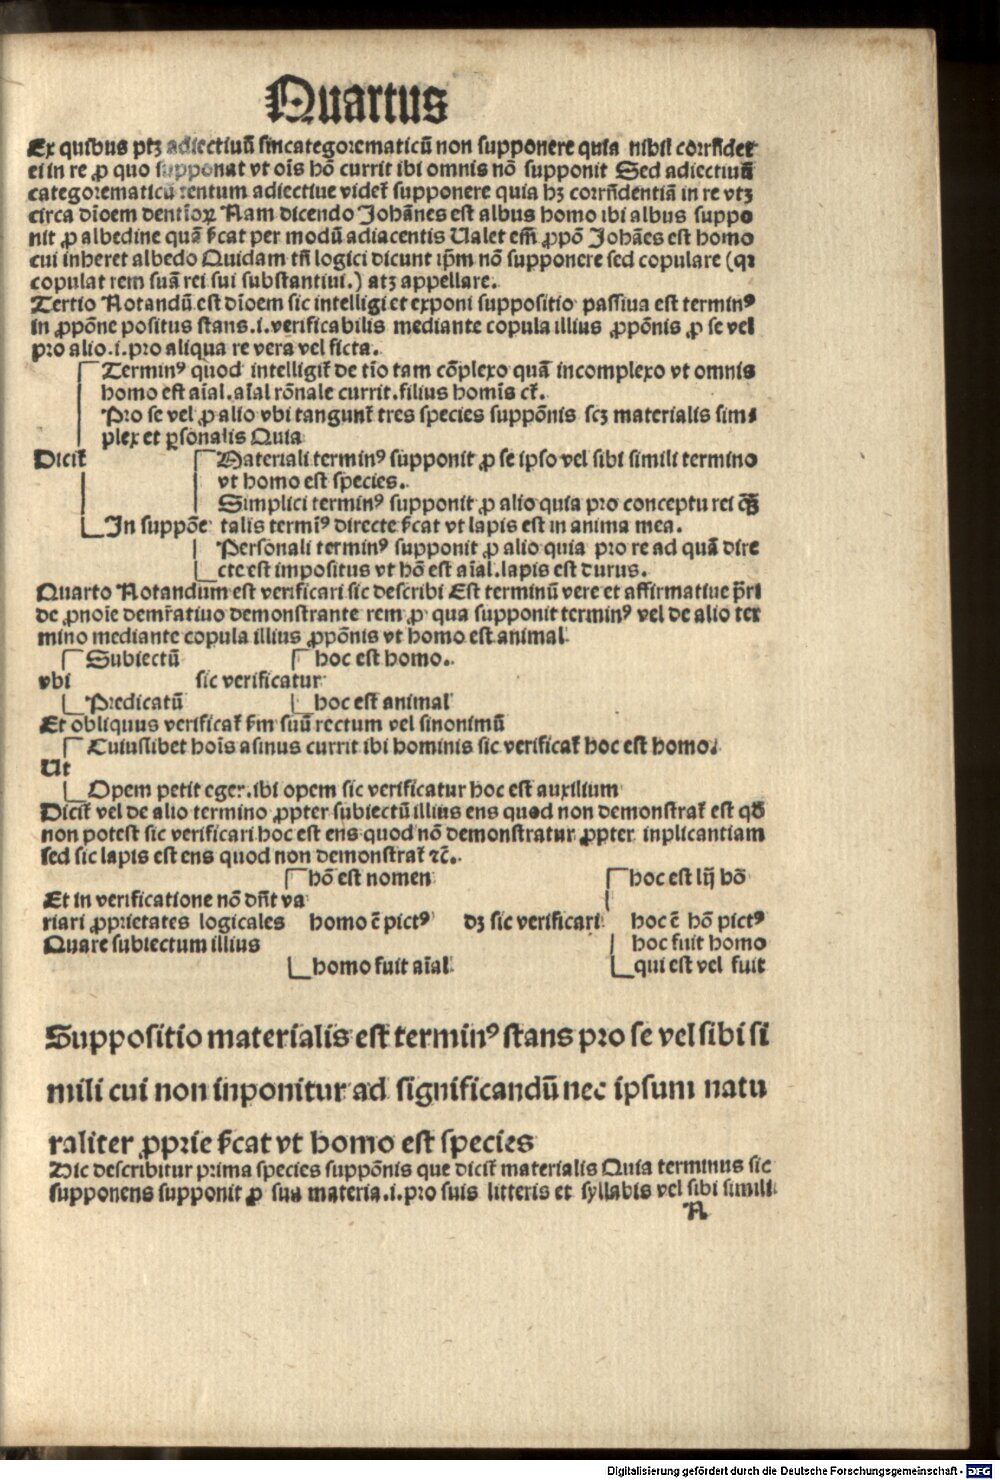 Quartus
Ex quibus ptꝫ adiectiuū sincategorematicū non supponere quia nihil corrñdet
ei in re ꝓ quo supponat vt oīs hō currit ibi omnis nō supponit Sed adiectiuū
categorematicū tentum adiectiue videt᷑ supponere quia hꝫ corrñdentiā in re vtꝫ
circa dīoem dentīoꝝ Nam dicendo Johānes est albus homo ibi albus suppo
nit ꝓ albedine quā ſ̄cat per modū adiacentis Ualet em̄ ꝓpō Johāes est homo
cui inheret albedo Quidam tn̄ logici dicunt ip̄m nō supponere sed copulare (qꝛ
copulat rem suā rei sui substantiui.) atꝫ appellare.
Tertio Notandū est dīoem sic intelligi et exponi suppositio passiua est terminꝰ
in ꝓpōne positus stans .i. verificabilis mediante copula illius ꝓpōnis ꝓ se vel
pro alio .i. pro aliqua re vera vel ficta.
Terminꝰ quod intelligit᷑ de tīo tam cōplexo quā incomplexo vt omnis
homo est aīal. aīal rōnale currit. filius homīs ct᷑.
Pro se vel ꝓ alio vbi tangunt᷑ tres species suppōnis scꝫ materialis sim⸗
plex et ꝑsonalis Quia
Dicit᷑ Materiali terminꝰ supponit ꝓ se ipso vel sibi simili termino
vt homo est species.
Simplici terminꝰ supponit ꝓ alio quia pro conceptu rei
In suppōe talis termīꝰ directe ſ̄cat vt lapis est in anima mea.
Personali terminꝰ supponit ꝓ alio quia pro re ad quā dire
cte est impositus vt hō est aīal. lapis est durus.
Quarto Notandum est verificari sic describi Est terminū vere et affirmatiue p̄ri
de ꝓnoīe demr̄atiuo demonstrante rem ꝓ qua supponit terminꝰ vel de alio ter
mino mediante copula illius ꝓpōnis vt homo est animal
Subiectū hoc est homo.
vbi sic verificatur
Predicatū hoc est animal
Et obliquus verificat᷑ ſ̄m suū rectum vel sinonimū
Cuiuslibet hoīs asinus currit ibi hominis sic verificat᷑ hoc est homo.
Ut
Opem petit eger. ibi opem sic verificatur hoc est auxilium
Dicit᷑ vel de alio termino ꝓpter subiectū illius ens quod non demonstrat᷑ est qđ
non potest sic verificari hoc est ens quod nō demonstratur ꝓpter inplicantiam
sed sic lapis est ens quod non demonstrat᷑ ⁊c̄.
hō est nomen hoc est lij hō
Et in verificatione nō dn̄t va
riari ꝓprietates logicales homo ē pictꝰ dꝫ sic verificari hoc ē hō pictꝰ
Quare subiectum illius hoc fuit homo
homo fuit aīal qui est vel fuit
Suppositio materialis est terminꝰ stans pro se vel sibi si
mili cui non inponitur ad significandū nec ipsum natu
raliter ꝓprie ſ̄cat vt homo est species
Hic describitur prima species suppōnis que dicit᷑ materialis Quia terminus sic
supponens supponit ꝓ sua materia .i. pro suis litteris et syllabis vel sibi simili
A
Digitalisierung gefördert durch die Deutsche Forschungsgemeinschaft - DFG